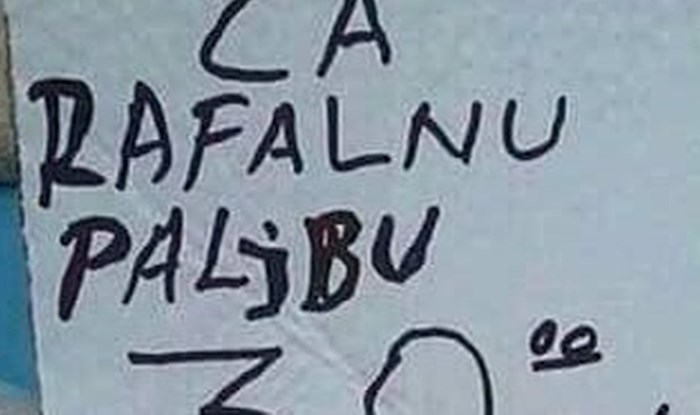 CA
RAFALNU
PALjBU
30 00